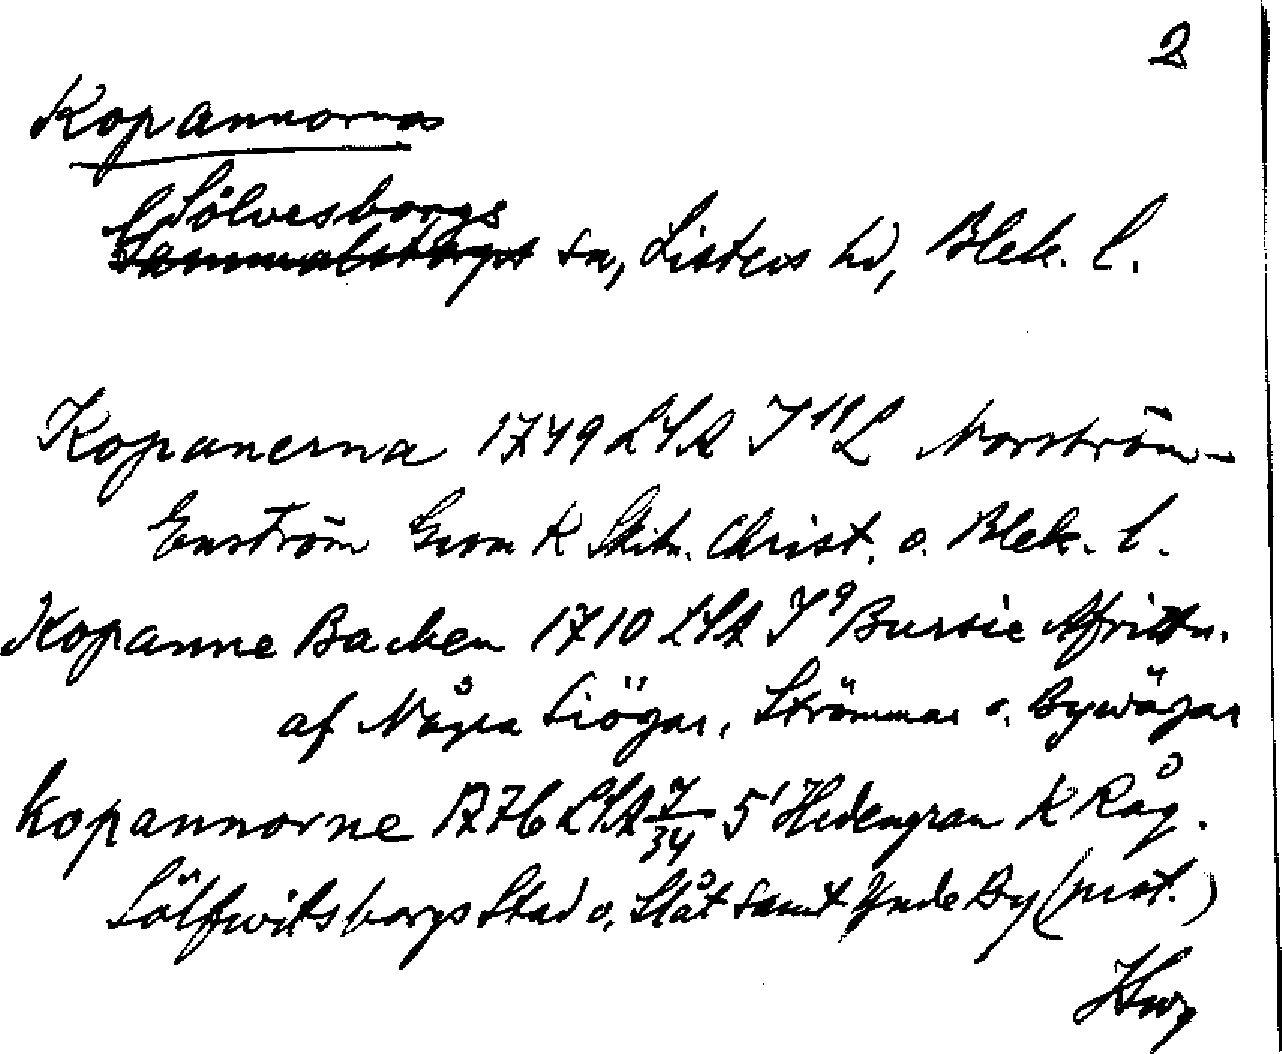 2
Kopannorna
Sölvesborgs
sn, Listers hd, Blek. l.
Kopanerna 1749 LSA I 11 L Norström-
Enström Geom K Skitn. Christ. o. Blek. l.
Kopanne Backen 1710 LSA I 9 Bursie Afrittn.
af Några Siögar, Strömmar o. Bywägar
Kopannorne 1776 LSA 7/34 5' Hedengran K Råg.
Sölfwitsborgs Stad o. Slåt samt Ynde By (prot.)